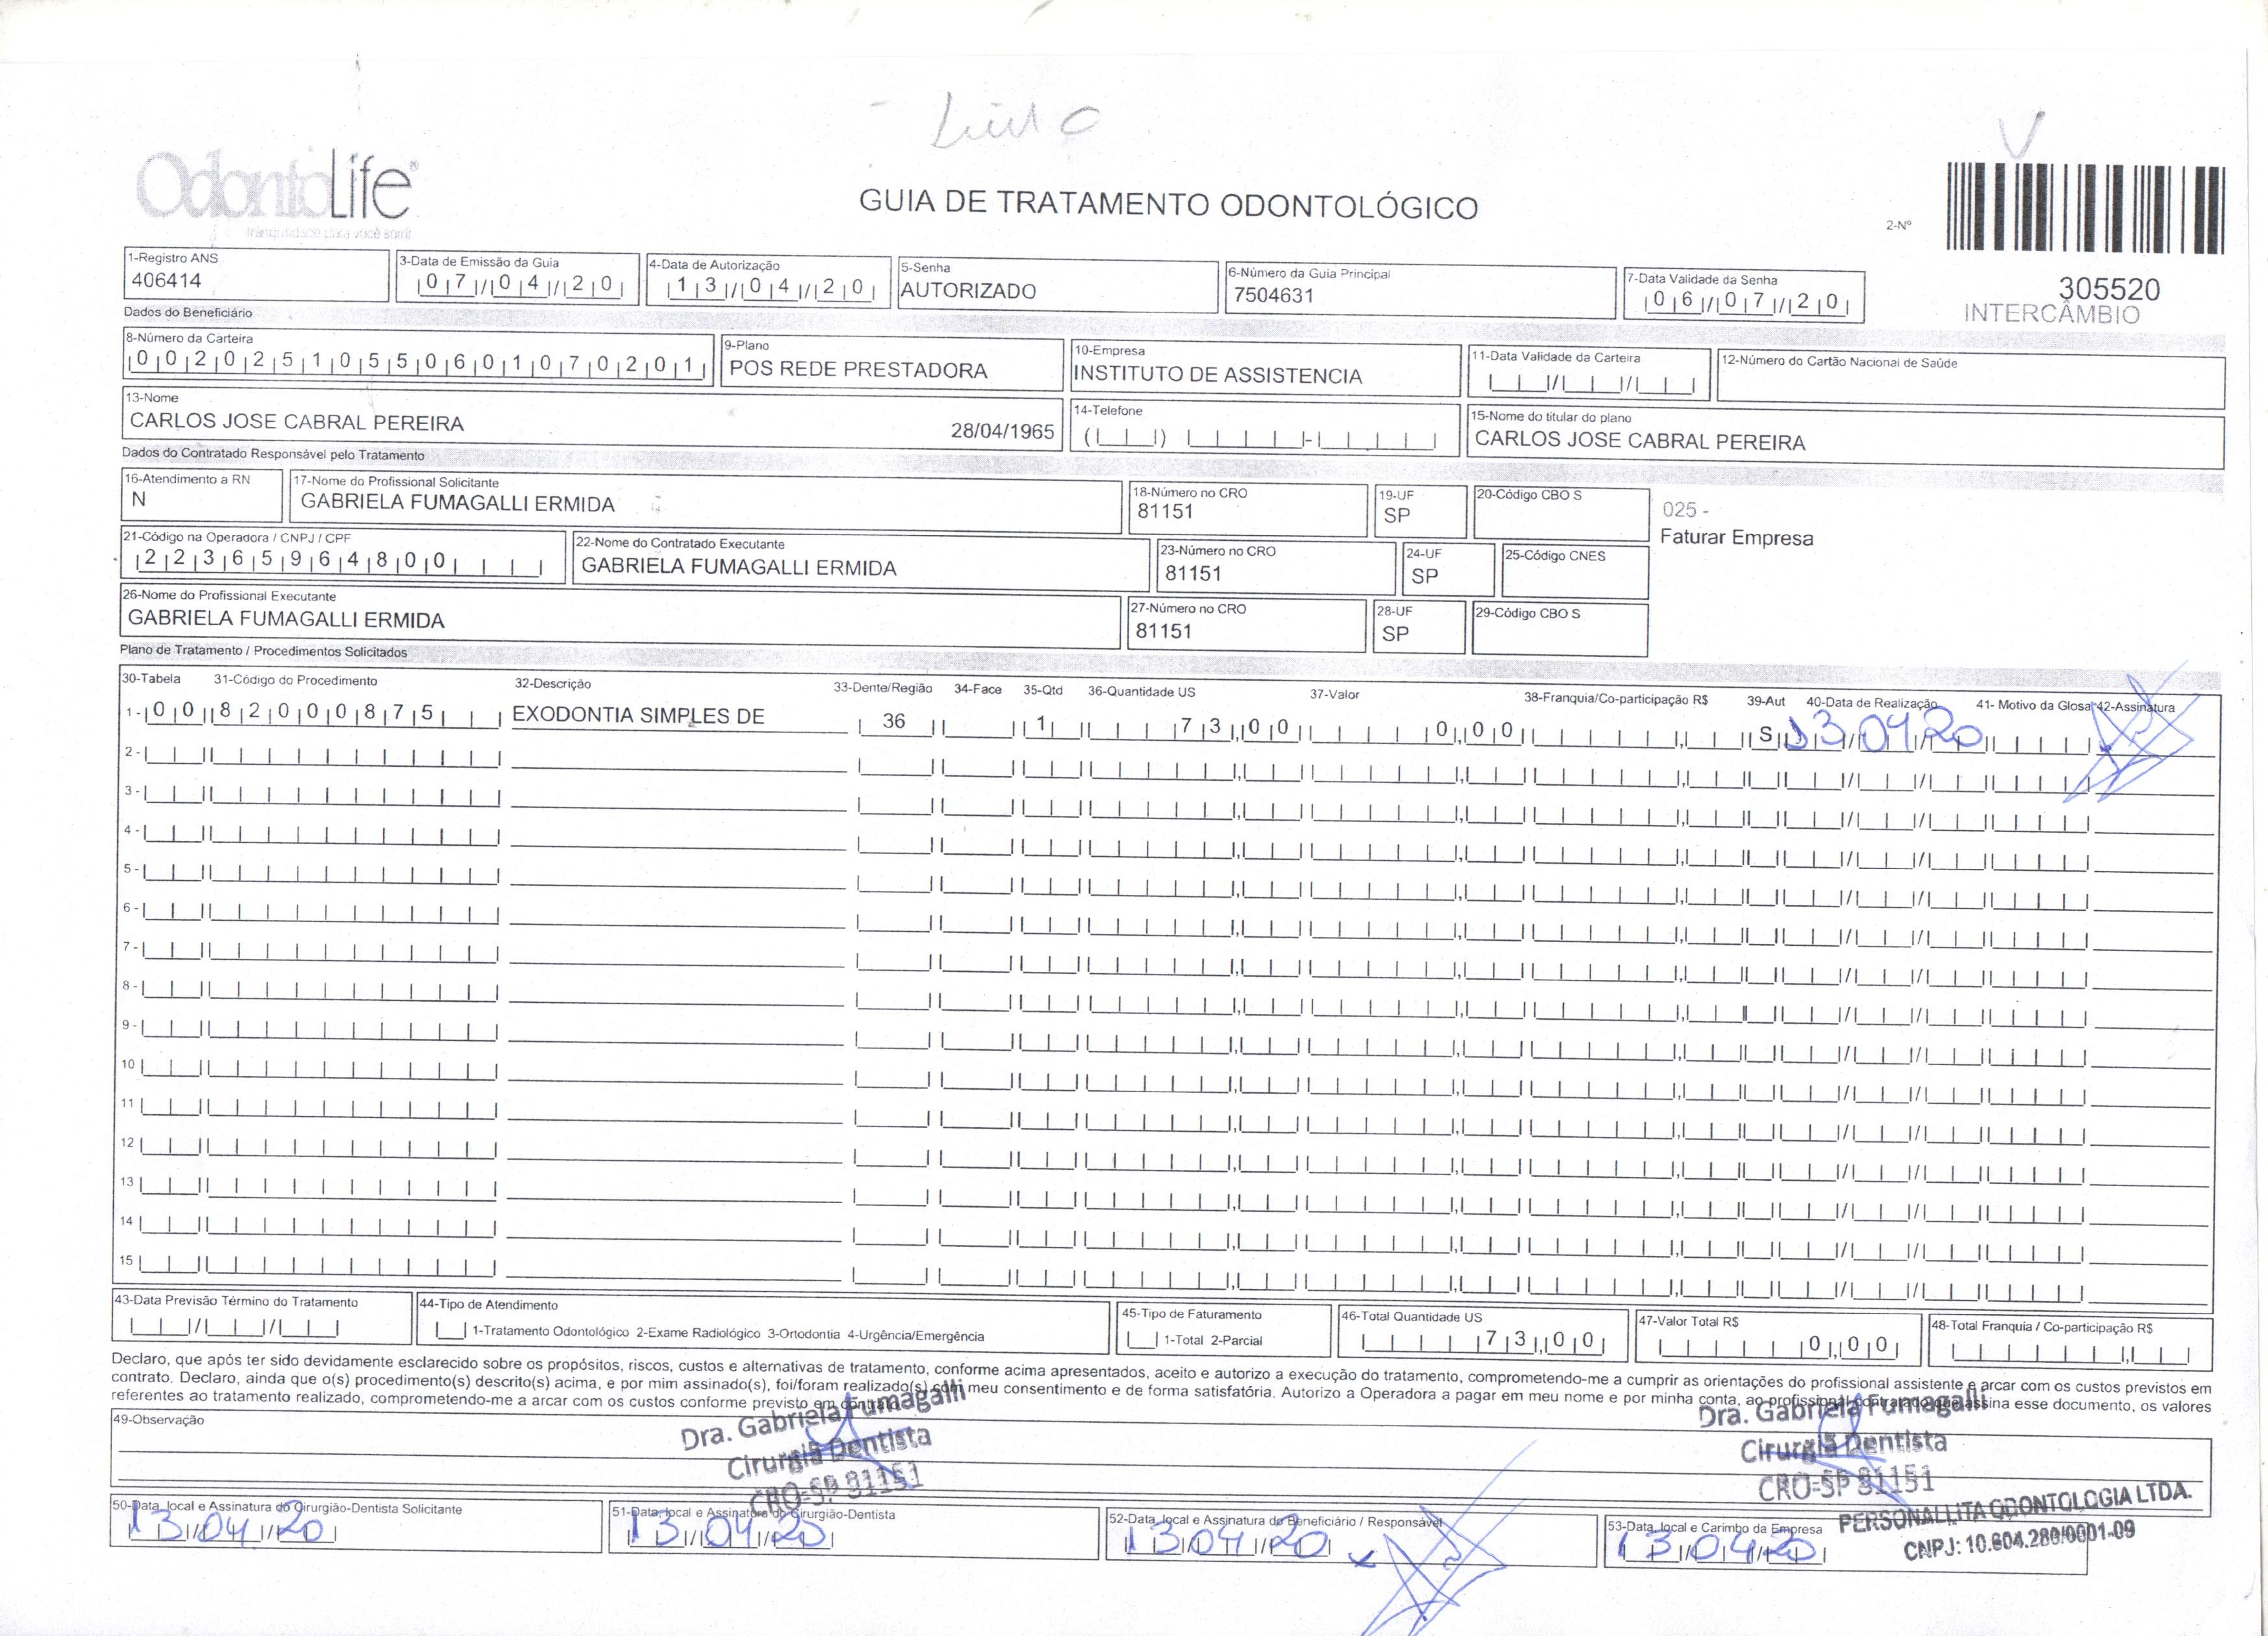 OdontoLife®
tranquilidade para você sorrir
GUIA DE TRATAMENTO ODONTOLÓGICO
2-Nº
305520
INTERCÂMBIO
1-Registro ANS
406414
3-Data de Emissão da Guia
07/04/20
4-Data de Autorização
13/04/20
5-Senha
AUTORIZADO
6-Número da Guia Principal
7504631
7-Data Validade da Senha
06/07/20
Dados do Beneficiário
8-Número da Carteira
00202510550601070201
9-Plano
POS REDE PRESTADORA
10-Empresa
INSTITUTO DE ASSISTENCIA
11-Data Validade da Carteira
12-Número do Cartão Nacional de Saúde
13-Nome
CARLOS JOSE CABRAL PEREIRA 28/04/1965
14-Telefone
15-Nome do titular do plano
CARLOS JOSE CABRAL PEREIRA
Dados do Contratado Responsável pelo Tratamento
16-Atendimento a RN
N
17-Nome do Profissional Solicitante
GABRIELA FUMAGALLI ERMIDA
18-Número no CRO
81151
19-UF
SP
20-Código CBO S
025 -
Faturar Empresa
21-Código na Operadora / CNPJ / CPF
22365964800
22-Nome do Contratado Executante
GABRIELA FUMAGALLI ERMIDA
23-Número no CRO
81151
24-UF
SP
25-Código CNES
26-Nome do Profissional Executante
GABRIELA FUMAGALLI ERMIDA
27-Número no CRO
81151
28-UF
SP
29-Código CBO S
Plano de Tratamento / Procedimentos Solicitados
30-Tabela 31-Código do Procedimento 32-Descrição 33-Dente/Região 34-Face 35-Qtd 36-Quantidade US 37-Valor 38-Franquia/Co-participação R$ 39-Aut 40-Data de Realização 41- Motivo da Glosa 42-Assinatura
1- 00 82000875 EXODONTIA SIMPLES DE 36 1 73,00 0,00 S 13/04/20
2-
3-
4-
5-
6-
7-
8-
9-
10
11
12
13
14
15
43-Data Previsão Término do Tratamento
44-Tipo de Atendimento
1-Tratamento Odontológico 2-Exame Radiológico 3-Ortodontia 4-Urgência/Emergência
45-Tipo de Faturamento
1-Total 2-Parcial
46-Total Quantidade US
73,00
47-Valor Total R$
0,00
48-Total Franquia / Co-participação R$
Declaro, que após ter sido devidamente esclarecido sobre os propósitos, riscos, custos e alternativas de tratamento, conforme acima apresentados, aceito e autorizo a execução do tratamento, comprometendo-me a cumprir as orientações do profissional assistente e arcar com os custos previstos em
contrato. Declaro, ainda que o(s) procedimento(s) descrito(s) acima, e por mim assinado(s), foi/foram realizado(s) com meu consentimento e de forma satisfatória. Autorizo a Operadora a pagar em meu nome e por minha conta, ao profissional contratado que assina esse documento, os valores
referentes ao tratamento realizado, comprometendo-me a arcar com os custos conforme previsto em contrato.
49-Observação
Dra. Gabriela Fumagalli
Cirurgiã Dentista
CRO-SP 81151
Dra. Gabriela Fumagalli
Cirurgiã Dentista
CRO-SP 81151
50-Data, local e Assinatura do Cirurgião-Dentista Solicitante
13/04/20
51-Data, local e Assinatura do Cirurgião-Dentista
13/04/20
52-Data, local e Assinatura do Beneficiário / Responsável
13/04/20
53-Data, local e Carimbo da Empresa
13/04/20
PERSONALLITA ODONTOLOGIA LTDA.
CNPJ: 10.604.280/0001-09